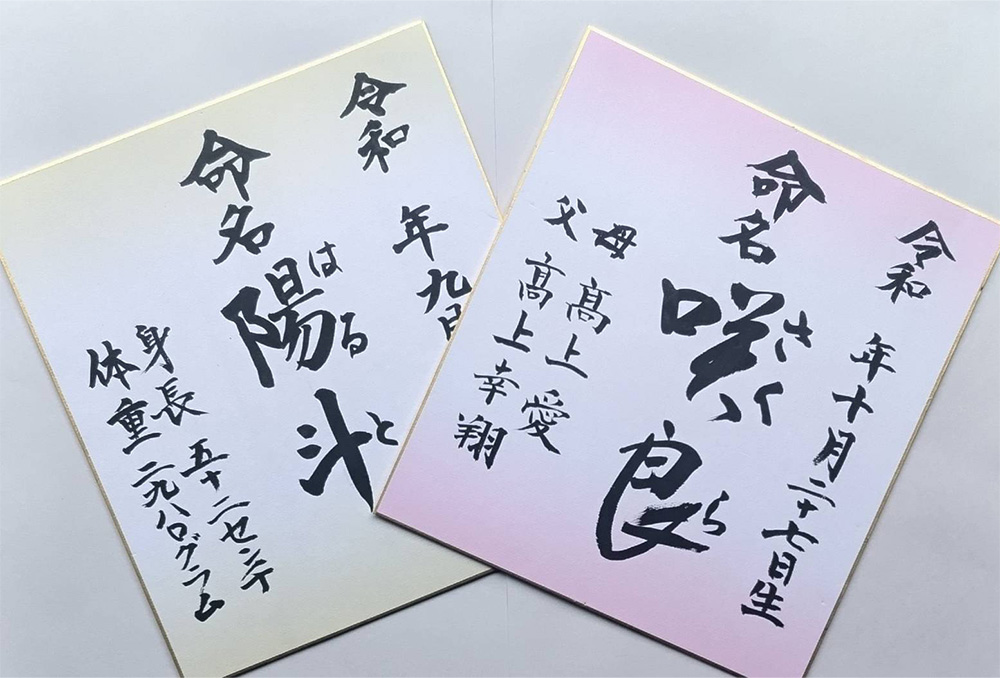 令和 年十月二十七日生
命名 咲良
さくら
母 髙上愛
父 髙上幸翔
令和 年九月
命名 陽斗
はると
身長 五十二センチ
体重 二九八〇グラム